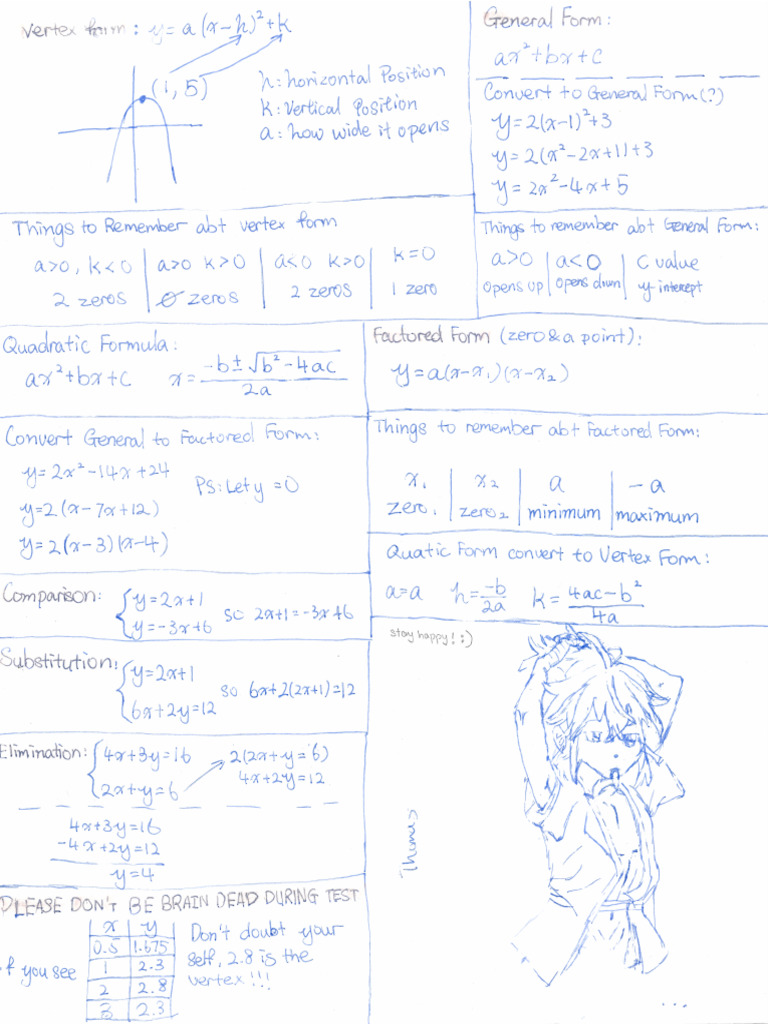 Vertex form: y = a(x-h)²+k
(1, 5)
h: horizontal Position
k: Vertical Position
a: how wide it opens
General Form:
ax²+bx+c
Convert to General Form(?)
y=2(x-1)²+3
y=2(x²-2x+1)+3
y=2x²-4x+5
Things to Remember abt vertex form
a>0, k<0 | a>0 k>0 | a<0 k>0 | k=0
2 zeros | 0 zeros | 2 zeros | 1 zero
Things to remember abt General Form:
a>0 | a<0 | C value
opens up | opens down | y-intercept
Quadratic Formula:
ax²+bx+c x= -b±√b²-4ac / 2a
Factored Form (zero & a point):
y=a(x-x₁)(x-x₂)
Convert General to Factored Form:
y=2x²-14x+24
PS: Let y=0
y=2(x-7x+12)
y=2(x-3)(x-4)
Things to remember abt Factored Form:
x₁ | x₂ | a | -a
zero₁ | zero₂ | minimum | maximum
Quatic Form convert to Vertex Form:
a=a h= -b/2a k= 4ac-b²/4a
Comparison: { y=2x+1
y=-3x+6 so 2x+1=-3x+6
stay happy! :)
Substitution: { y=2x+1
6x+2y=12 so 6x+2(2x+1)=12
Elimination: { 4x+3y=16
2x+y=6
2(2x+y=6)
4x+2y=12
4x+3y=16
-4x+2y=12
y=4
Thomas
PLEASE DON'T BE BRAIN DEAD DURING TEST
if you see
x | y
0.5 | 1.675
1 | 2.3
2 | 2.8
3 | 2.3
Don't doubt your
self, 2.8 is the
vertex!!!
...